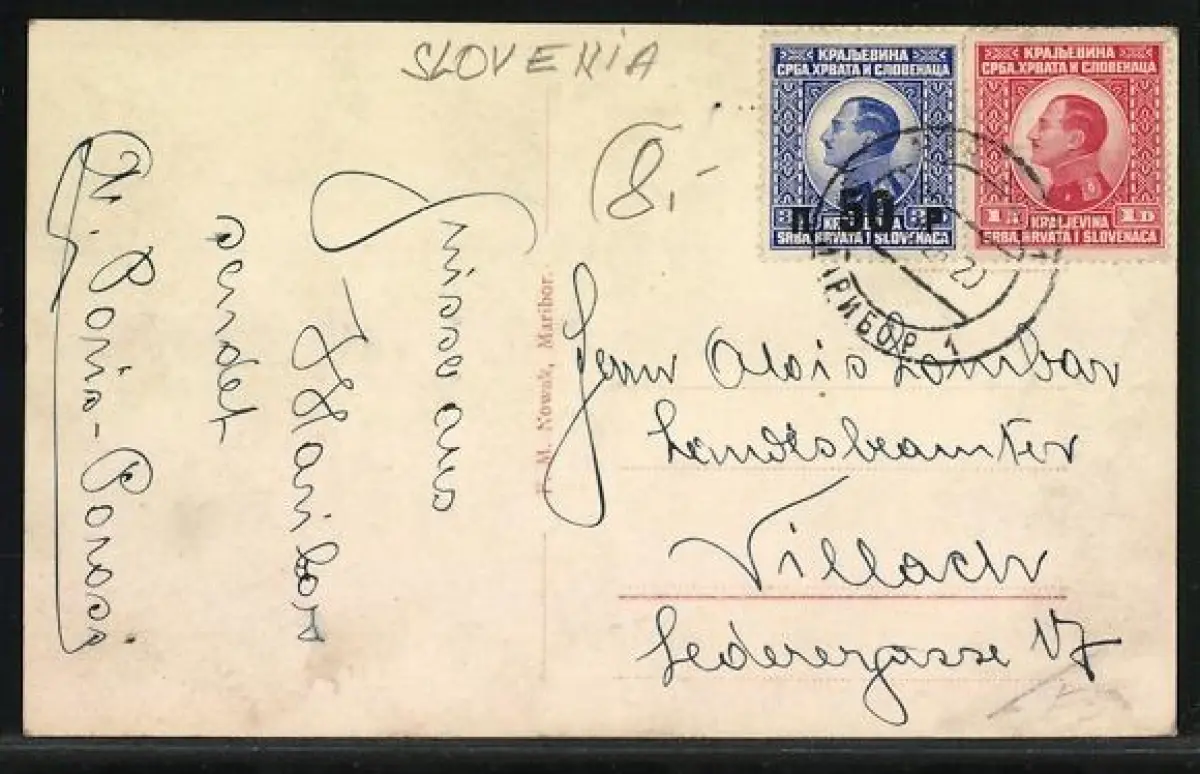 SLOVENIA
КРАЉЕВИНА
СРБА, ХРВАТА И СЛОВЕНАЦА
3 D
П 50 P
KRALJEVINA
SRBA, HRVATA I SLOVENACA
КРАЉЕВИНА
СРБА, ХРВАТА И СЛОВЕНАЦА
1 Д KRALJEVINA 1 D
SRBA, HRVATA I SLOVENACA
МАРИБОР 1
8.-
M. Nowak, Maribor.
Grüsse aus
Maribor
sendet
Herrn Alois Lombar
Landesbeamter
Villach
Lederergasse 17